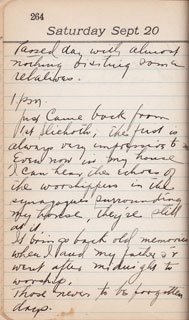 264
Saturday Sept 20
Passed day with almost
nothing visiting some
relatives.
1 pm
Just came back from
1st slichoth, the first is
always very impressive &
Even now in my house
I can hear the echoes of
the worshippers in the
synagogue surrounding
my house, theyre still
at it
It brings back old memories
when I and my father s
went after midnight to
worship,
Those never to be forgotten
days.